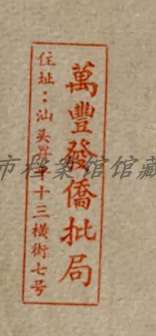 萬豐發僑批局
住址：汕头置平十三橫街七号
市档案馆馆藏